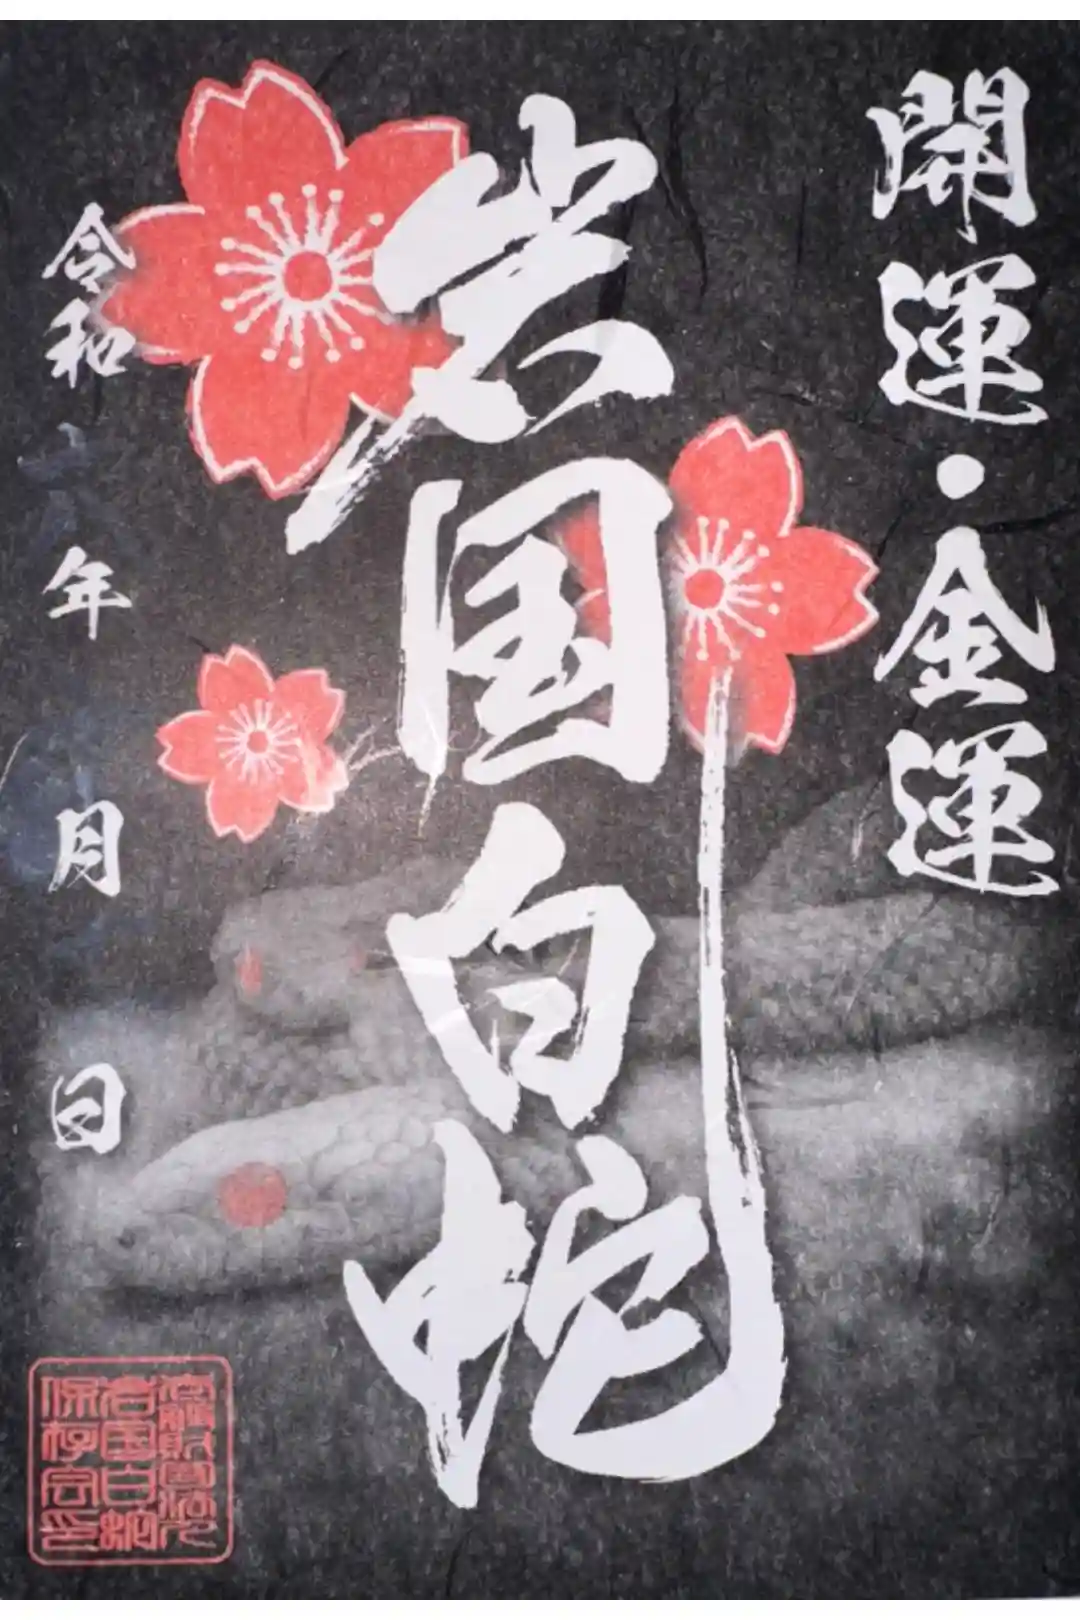 開運・金運
岩国白蛇
令和 年 月 日
岩国白蛇
保存会印